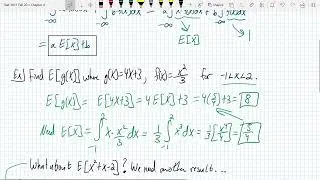 = a E[X] + b
E[X]
Ex) Find E[g(X)] where g(X)=4X+3, f(x)=x²/3 for -1<x<2.
E[g(X)] = E[4X+3] = 4E[X]+3 = 4(5/4)+3 = 8
Need E[X] = ∫_{-1}^{2} x·x²/3 dx = 1/3 ∫_{-1}^{2} x³ dx = 1/3 [x⁴/4] = 5/4
What about E[X²+X-2]? We need another result...